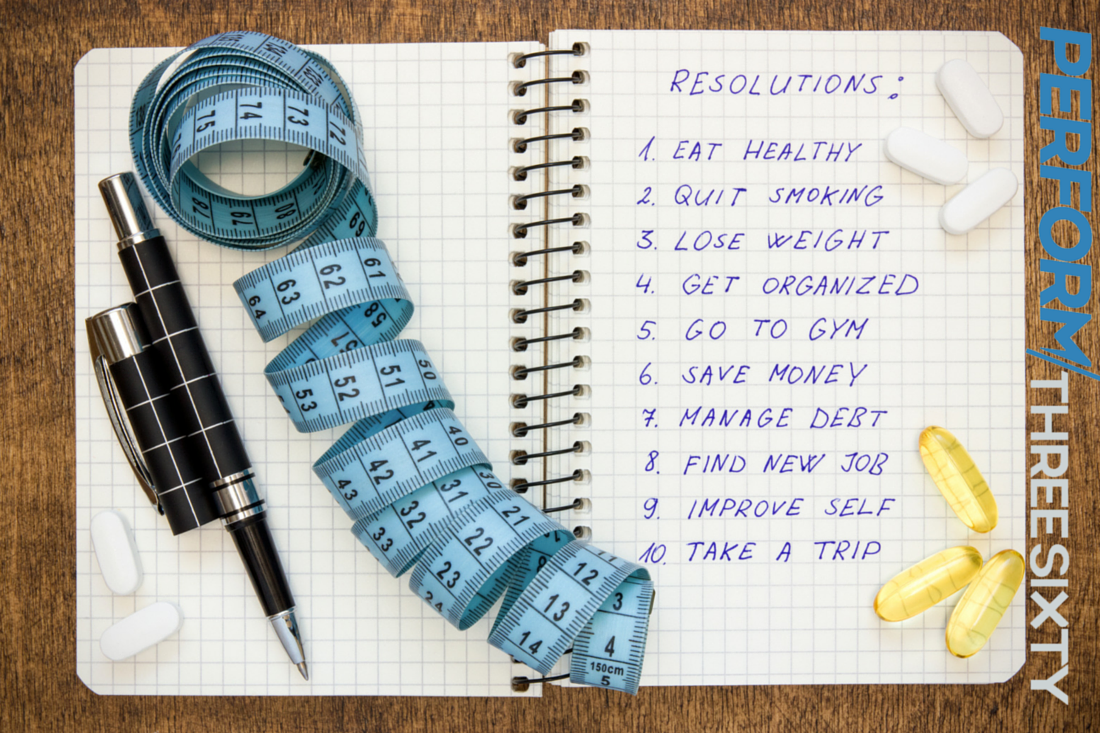 RESOLUTIONS:
1. EAT HEALTHY
2. QUIT SMOKING
3. LOSE WEIGHT
4. GET ORGANIZED
5. GO TO GYM
6. SAVE MONEY
7. MANAGE DEBT
8. FIND NEW JOB
9. IMPROVE SELF
10. TAKE A TRIP
PERFORM/THREESIXTY
75 74 73 72
78 79 80
69
64 63 62 61
58
57
53 52 51 50
43 42 41 40
33 32 31 30
24 23 22 21
14 13 12
3
4
150cm
5